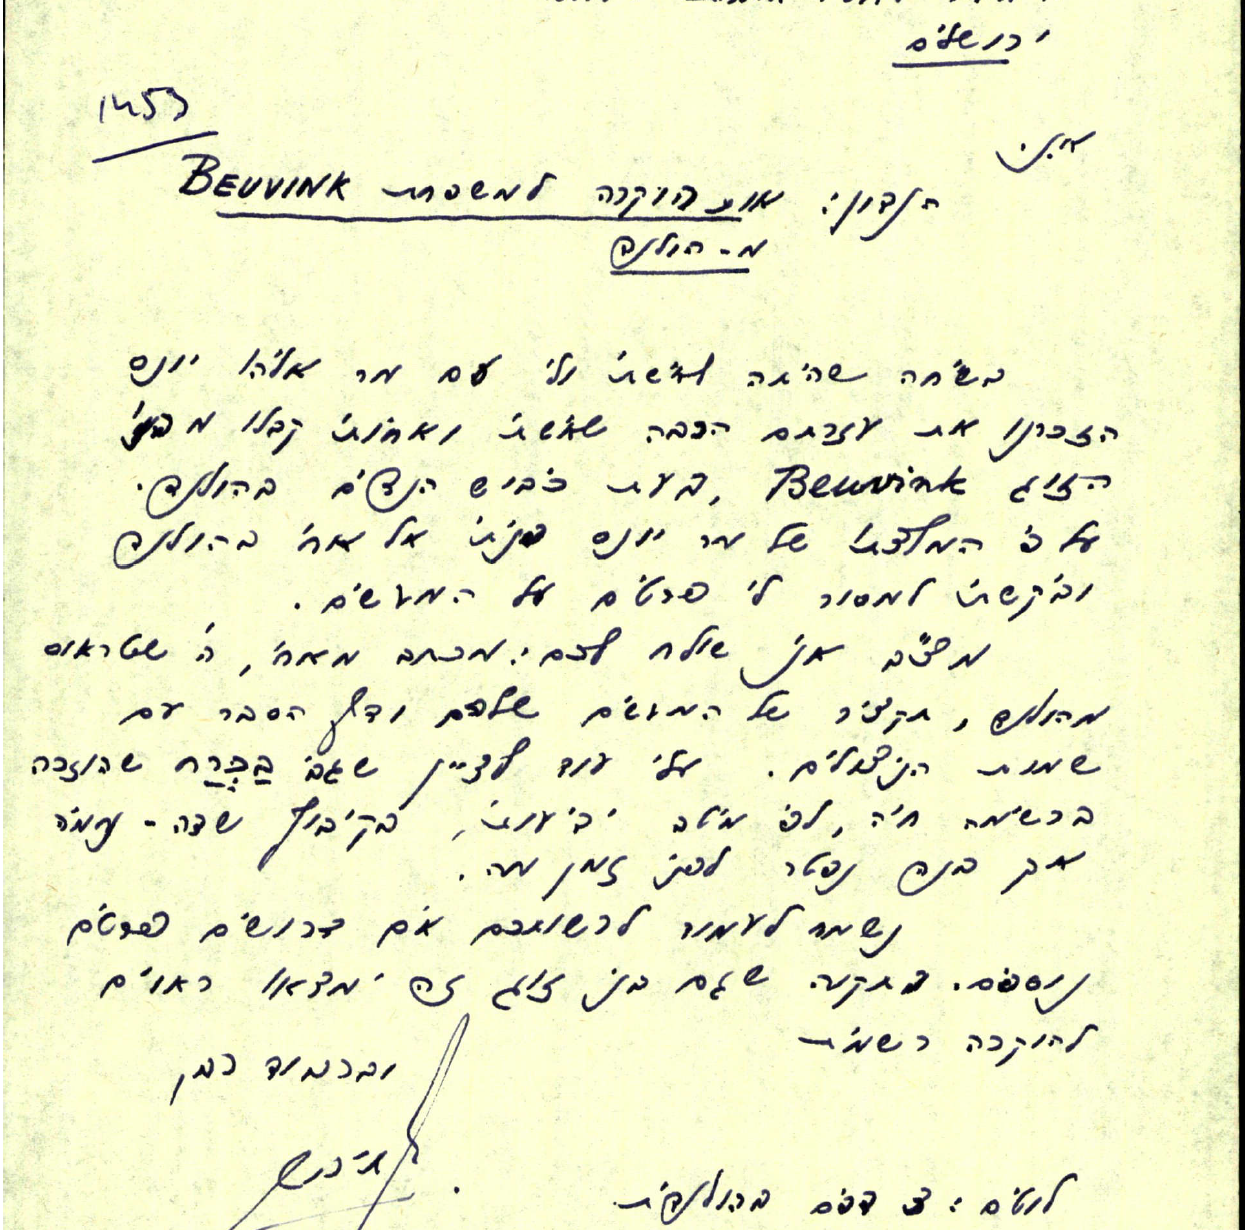 ירושלים
1453
א.נ.
הנדון: אות הוקרה למשפחת BEUVINK
מ-הולנד
בשיחה שהיתה לאשתי ולי עם מר אליהו יונס
הזכרנו את עזרתם הרבה שאשתי ואחותי קבלו מבני
הזוג Beuvink, בעת כיבוש הנצים בהולנד.
על פי המלצתו של מר יונס פניתי אל אחי בהולנד
וביקשתי למסור לי פרטים על המעשים.
מצ"ב אני שולח לכם: מכתב מאחי, ה' שטראוס
מהולנד, תקציר של המעשים שלהם ודף הסבר עם
שמות הניצולים. עלי עוד לציין שגבי בכרח שהוזכרה
ברשימה חיה, לפי מיטב ידיעותי, בקיבוץ שדה-נחמיה
אך בנה נפטר לפני זמן מה.
נשמח לעמוד לרשותכם אם דרושים פרטים
נוספים. בתקוה שגם בני זוג זה ימצאו ראויים
להוקרה רשמית
ובכבוד רב,
לוטים: 3 דפים בהולנדית